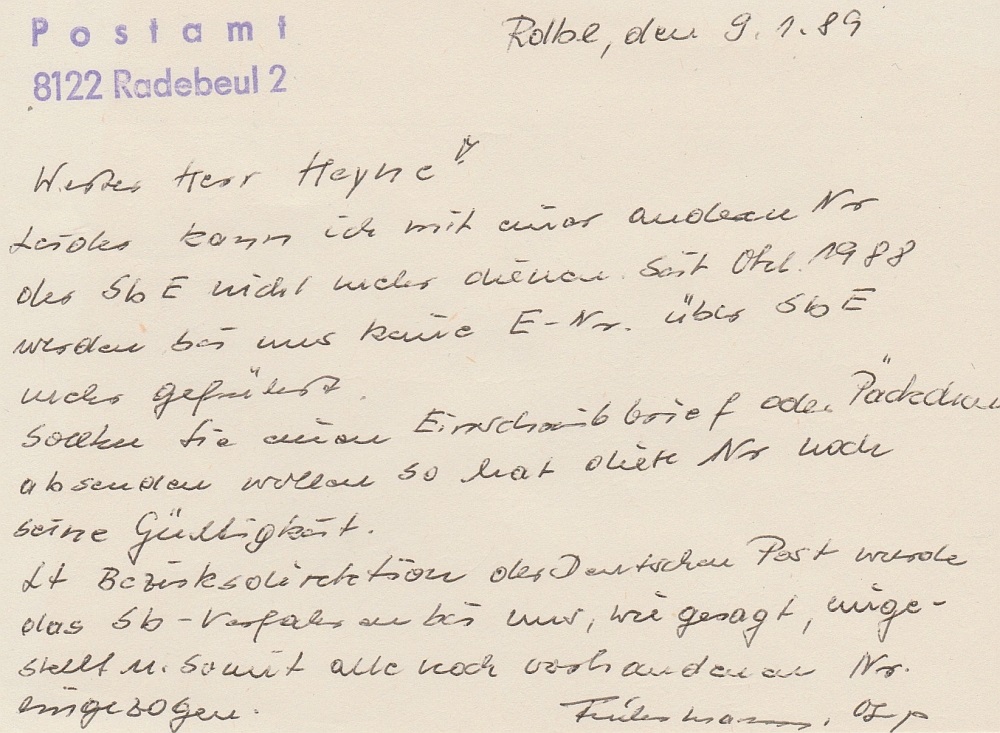 Postamt
8122 Radebeul 2
Rdbl, den 9.1.89
Werter Herr Heyne!
Leider kann ich mit einer anderen Nr
der Sb E nicht mehr dienen. Seit Okt. 1988
werden bei uns keine E-Nr. über Sb E
mehr geführt.
Sollten Sie einen Einschreibbrief oder Päckchen
absenden wollen so hat diese Nr noch
seine Gültigkeit.
Lt Bezirksdirektion der Deutschen Post wurde
das Sb-Verfahren bei uns, wie gesagt, einge-
stellt u. somit alle noch vorhandenen Nr.
eingezogen.